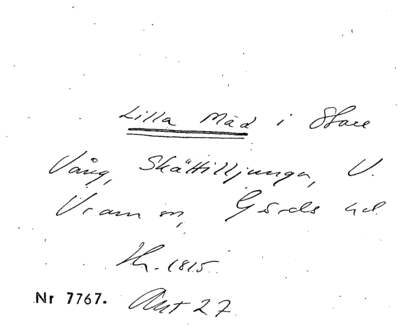 Lilla Mäd i Store
Vång, Skättilljunga, V.
Vram m, Gärds hd.
Th. 1815.
Nr 7767. Ant 27